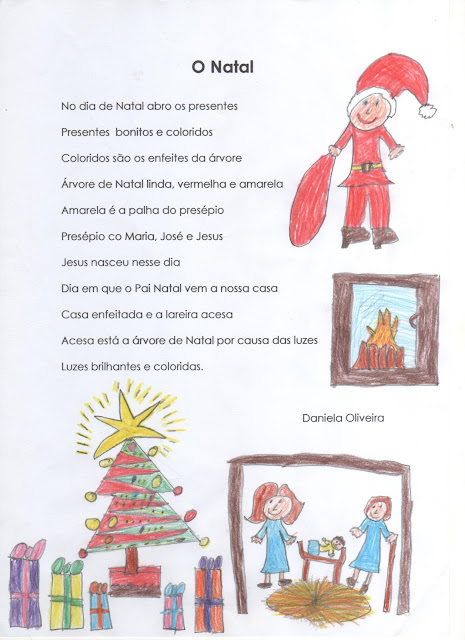 O Natal
No dia de Natal abro os presentes
Presentes bonitos e coloridos
Coloridos são os enfeites da árvore
Árvore de Natal linda, vermelha e amarela
Amarela é a palha do presépio
Presépio co Maria, José e Jesus
Jesus nasceu nesse dia
Dia em que o Pai Natal vem a nossa casa
Casa enfeitada e a lareira acesa
Acesa está a árvore de Natal por causa das luzes
Luzes brilhantes e coloridas.
Daniela Oliveira